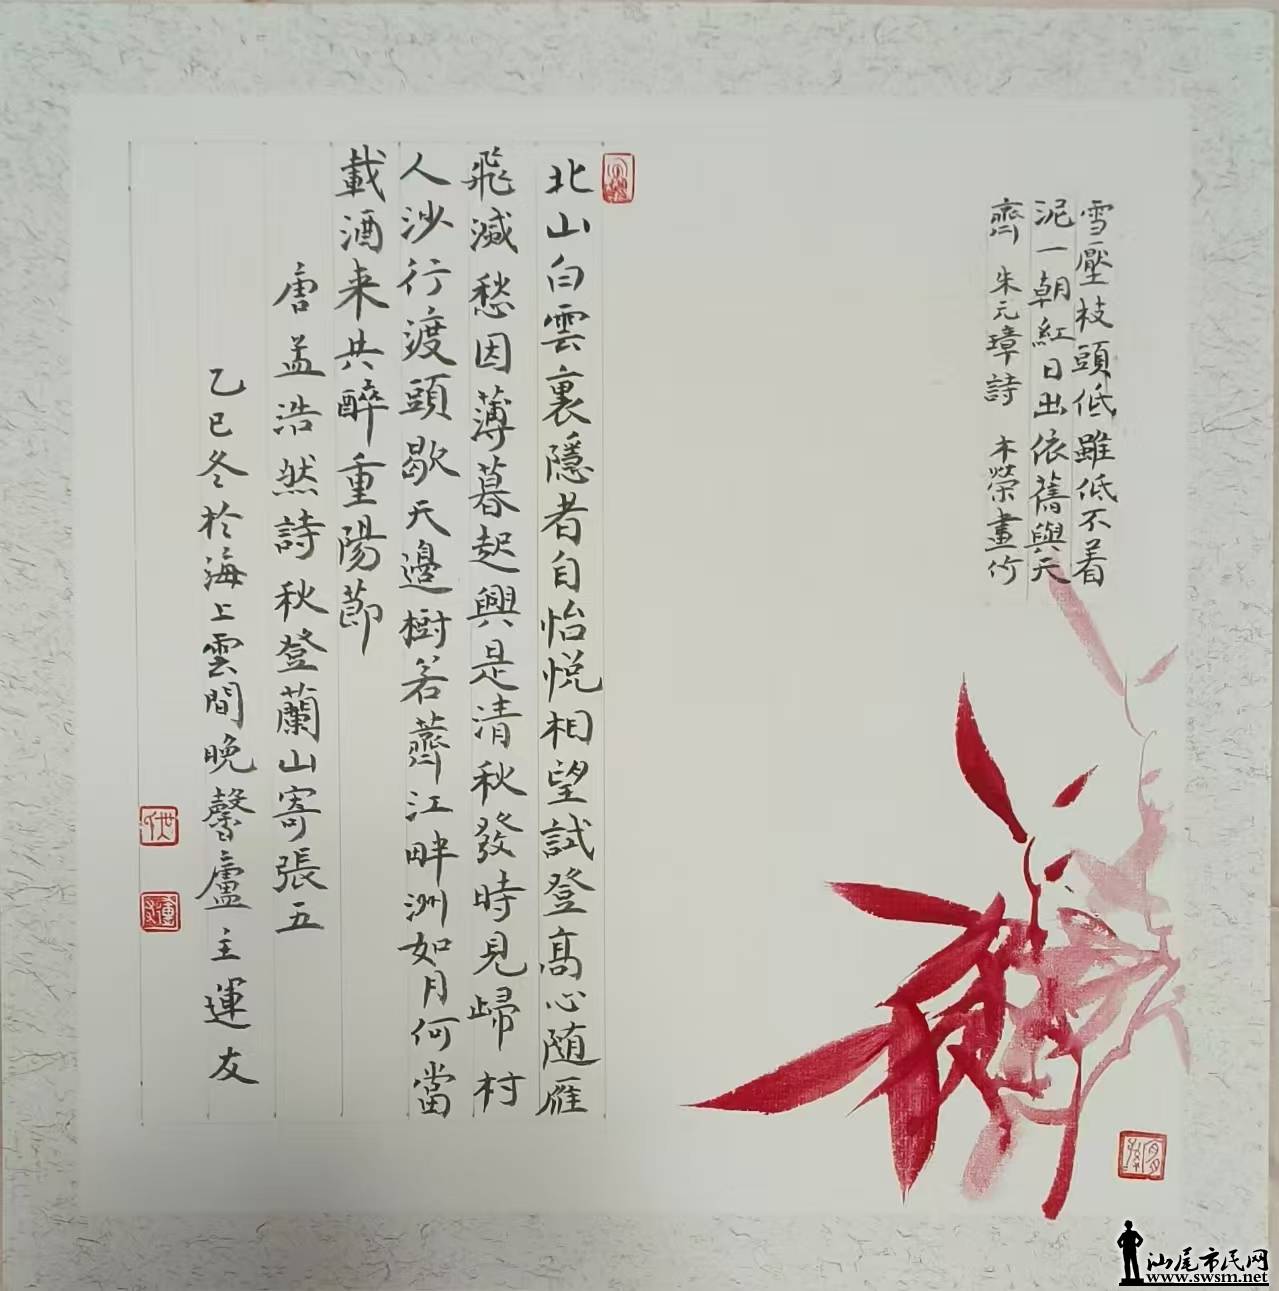 雪壓枝頭低雖低不着
泥一朝紅日出依舊與天
齊 朱元璋詩 木榮畫竹
北山白雲裏隱者自怡悅相望試登高心随雁
飛滅愁因薄暮起興是清秋發時見歸村
人沙行渡頭歇天邊樹若薺江畔洲如月何當
載酒来共醉重陽節
唐孟浩然詩秋登蘭山寄張五
乙巳冬於海上雲間晚馨廬主運友
汕尾市民网
www.swsm.net